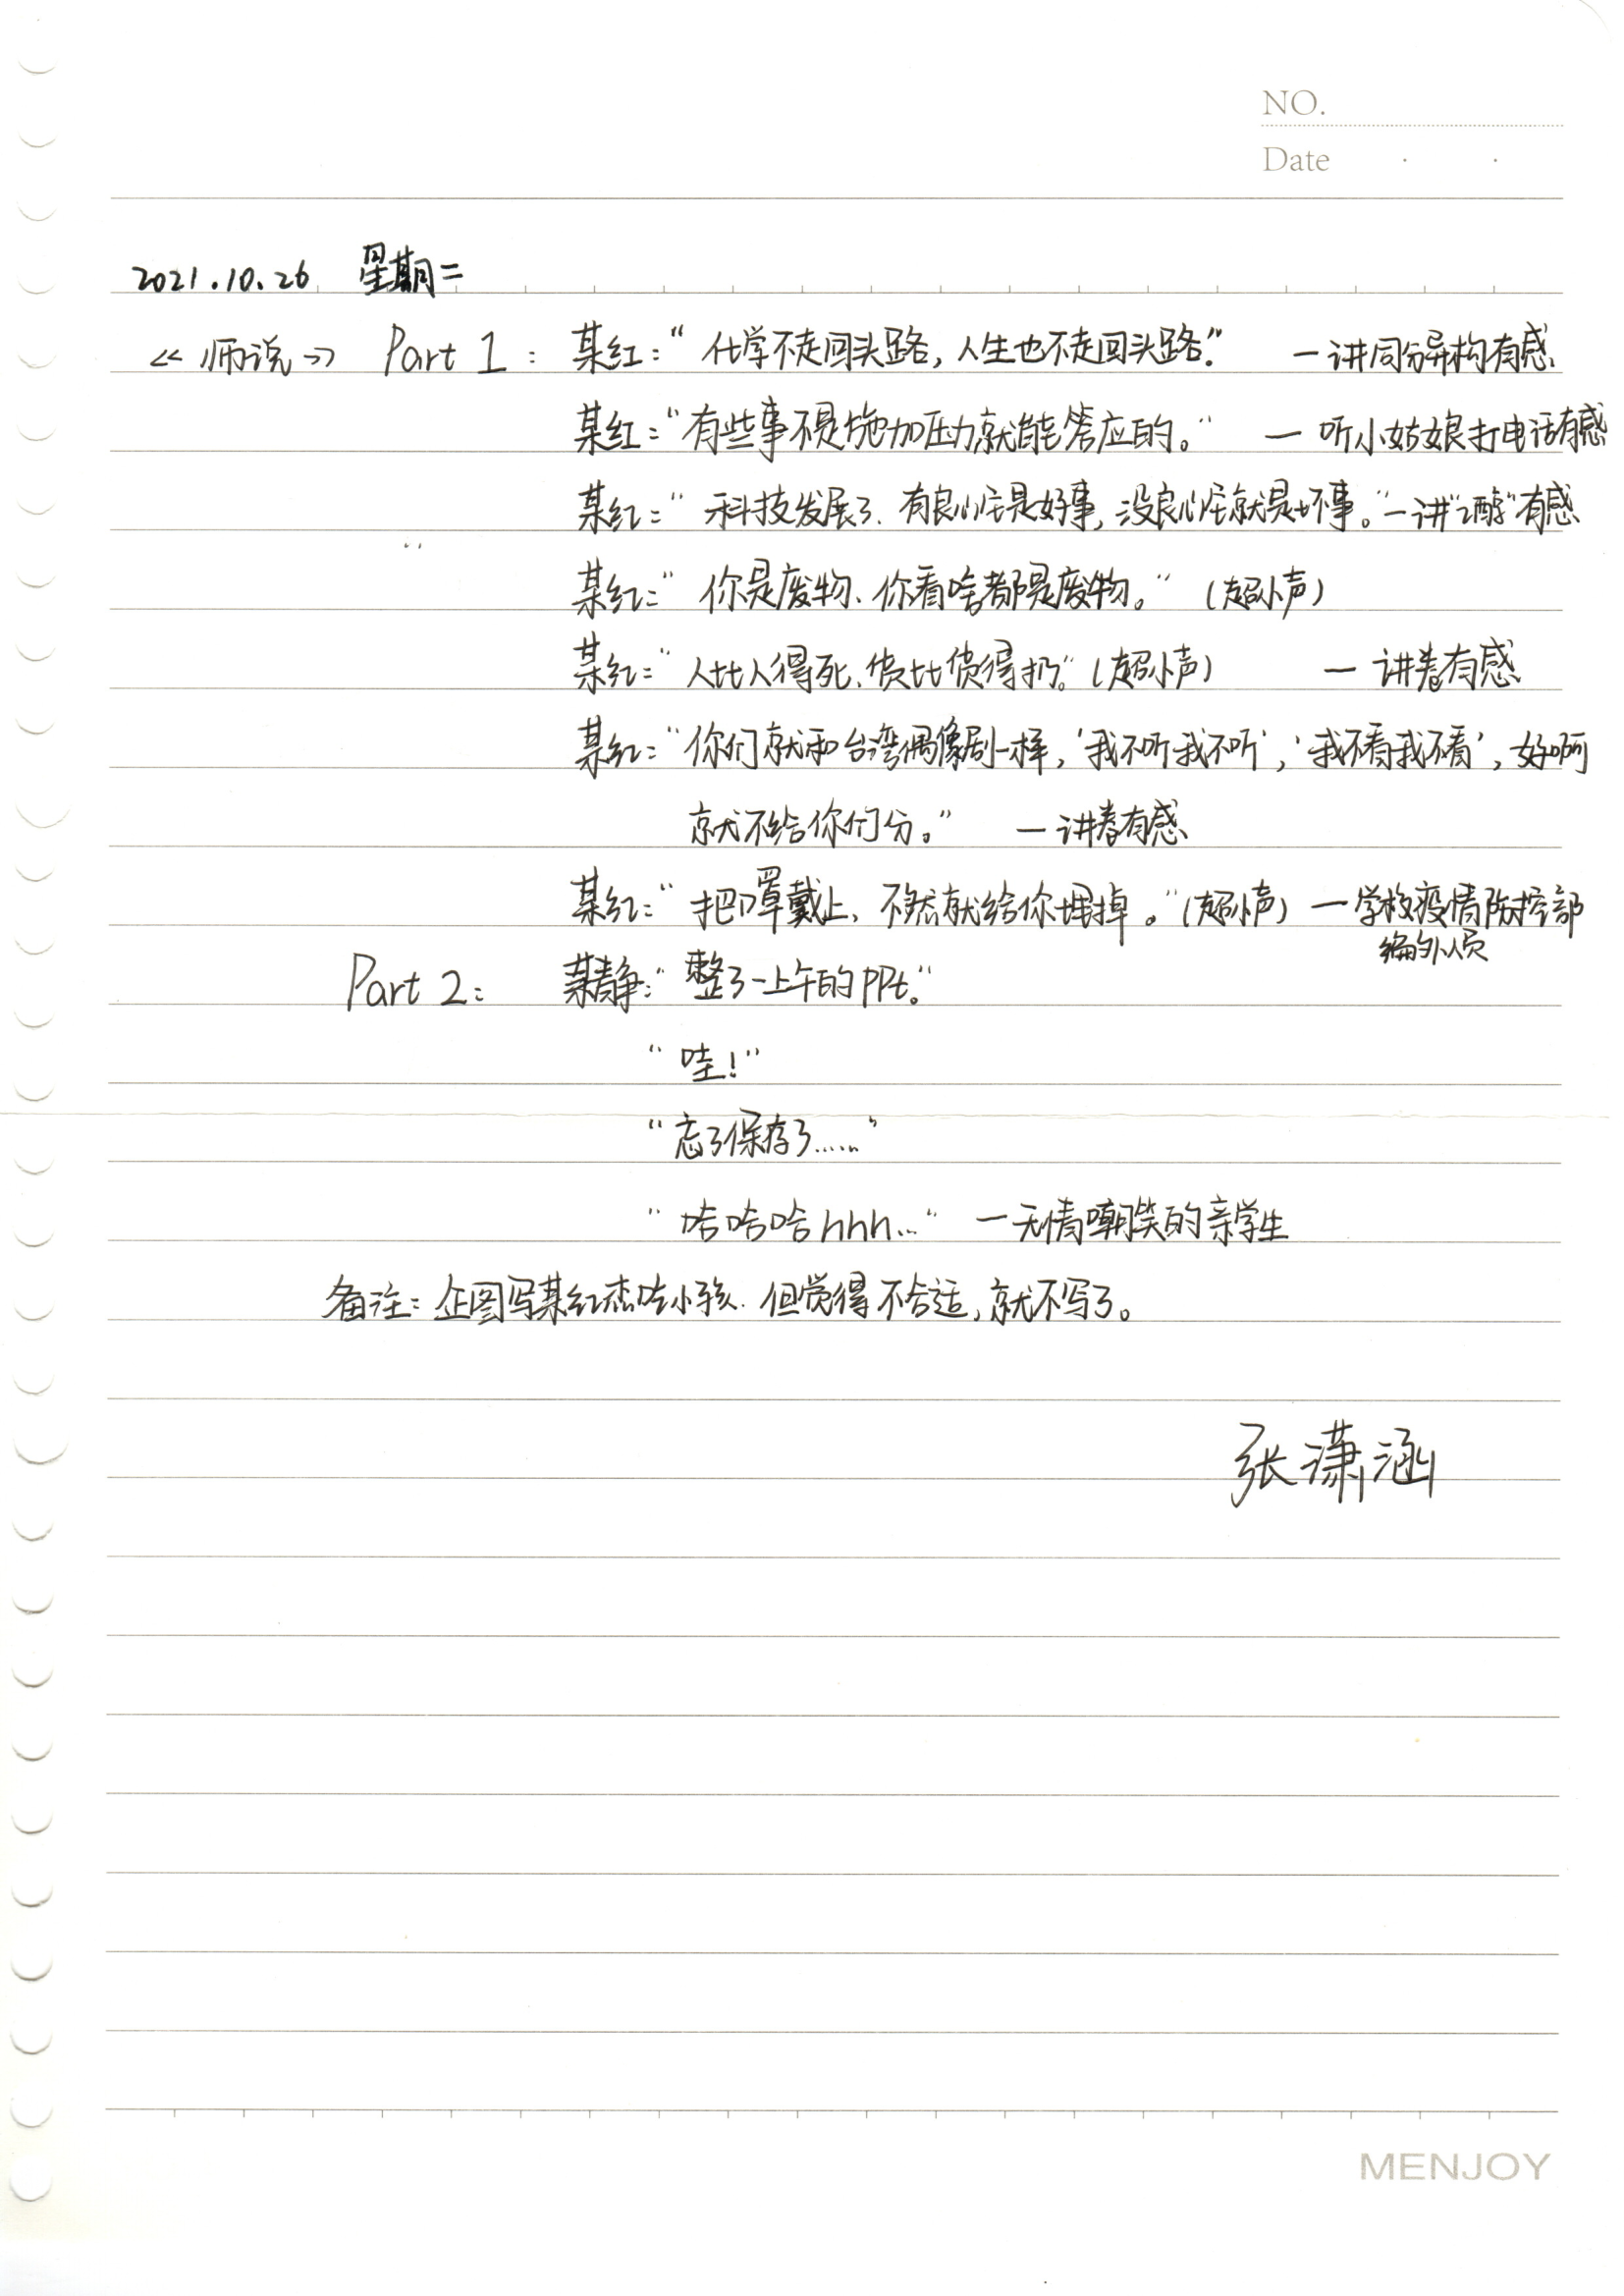 NO.
Date
2021.10.26 星期二
《师说》 Part 1: 某红:“化学不走回头路,人生也不走回头路.” —讲同分异构有感
某红:“有些事不是施加压力就能答应的。” — 听小姑娘打电话有感
某红:“科技发展了、有良心它是好事,没良心它就是坏事。”—讲“醇”有感
某红:“你是废物、你看啥都是废物。” (超小声)
某红:“人比人得死、货比货得扔。”(超小声) — 讲卷有感
某红:“你们就和台湾偶像剧一样,‘我不听我不听’,‘我不看我不看’,好啊
就不给你们分。” —讲卷有感
某红:“把口罩戴上、不然就给你埋掉。”(超小声) —学校疫情防控部
编外人员
Part 2: 某静:“整了一上午的PPt。”
“哇!”
“忘了保存了......”
“哈哈哈hhh...” —无情嘲笑的亲学生
备注:企图写某红 小孩、但觉得不合适,就不写了。
张潇涵
MENJOY